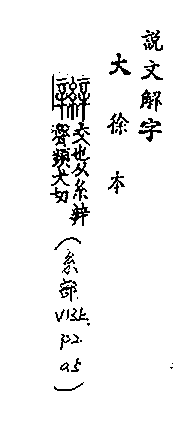 説文解字
大徐本
辮 交也从糸辡
聲頻犬切
(糸部
V13上.
p.2.
a.5)